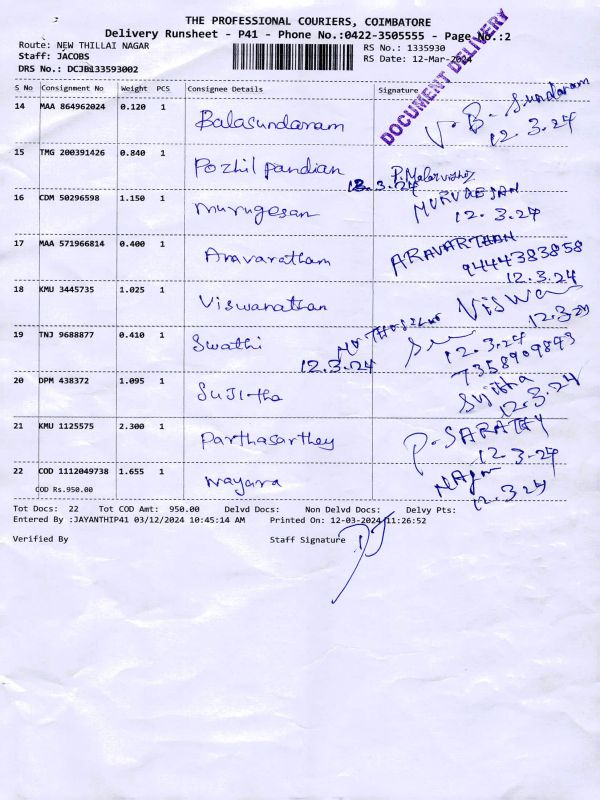 THE PROFESSIONAL COURIERS, COIMBATORE
Delivery Runsheet - P41 - Phone No.:0422-3505555 - Page No.:2
Route: NEW THILLAI NAGAR
RS No.: 1335930
Staff: JACOBS
RS Date: 12-Mar-2024
DRS No.: DCJB133593002
DOCUMENT DELIVERY
S No Consignment No Weight PCS Consignee Details Signature
14 MAA 864962024 0.120 1 Balasundaram V. B. Sundaram
12.3.24
15 TMG 200391426 0.840 1 Pozhil pandian
12.3.24
16 CDM 50296598 1.150 1 murugesan MURUGESAN
12.3.24
17 MAA 571966814 0.400 1 Aravaratham ARAVARTHAN
9444383858
12.3.24
18 KMU 3445735 1.025 1 Viswanathan Viswa
12.3.24
19 TNJ 9688877 0.410 1 Swathi
12.3.24
12.3.24
7358909843
20 DPM 438372 1.095 1 SuJitha Sujitha
12.3.24
21 KMU 1125575 2.300 1 Parthasarthey P-SARATHY
12.3-24
22 COD 1112049738 1.655 1 nayara
COD Rs.950.00
12.3.24
Tot Docs: 22 Tot COD Amt: 950.00 Delvd Docs: Non Delvd Docs: Delvy Pts:
Entered By :JAYANTHIP41 03/12/2024 10:45:14 AM Printed On: 12-03-2024 11:26:52
Verified By Staff Signature